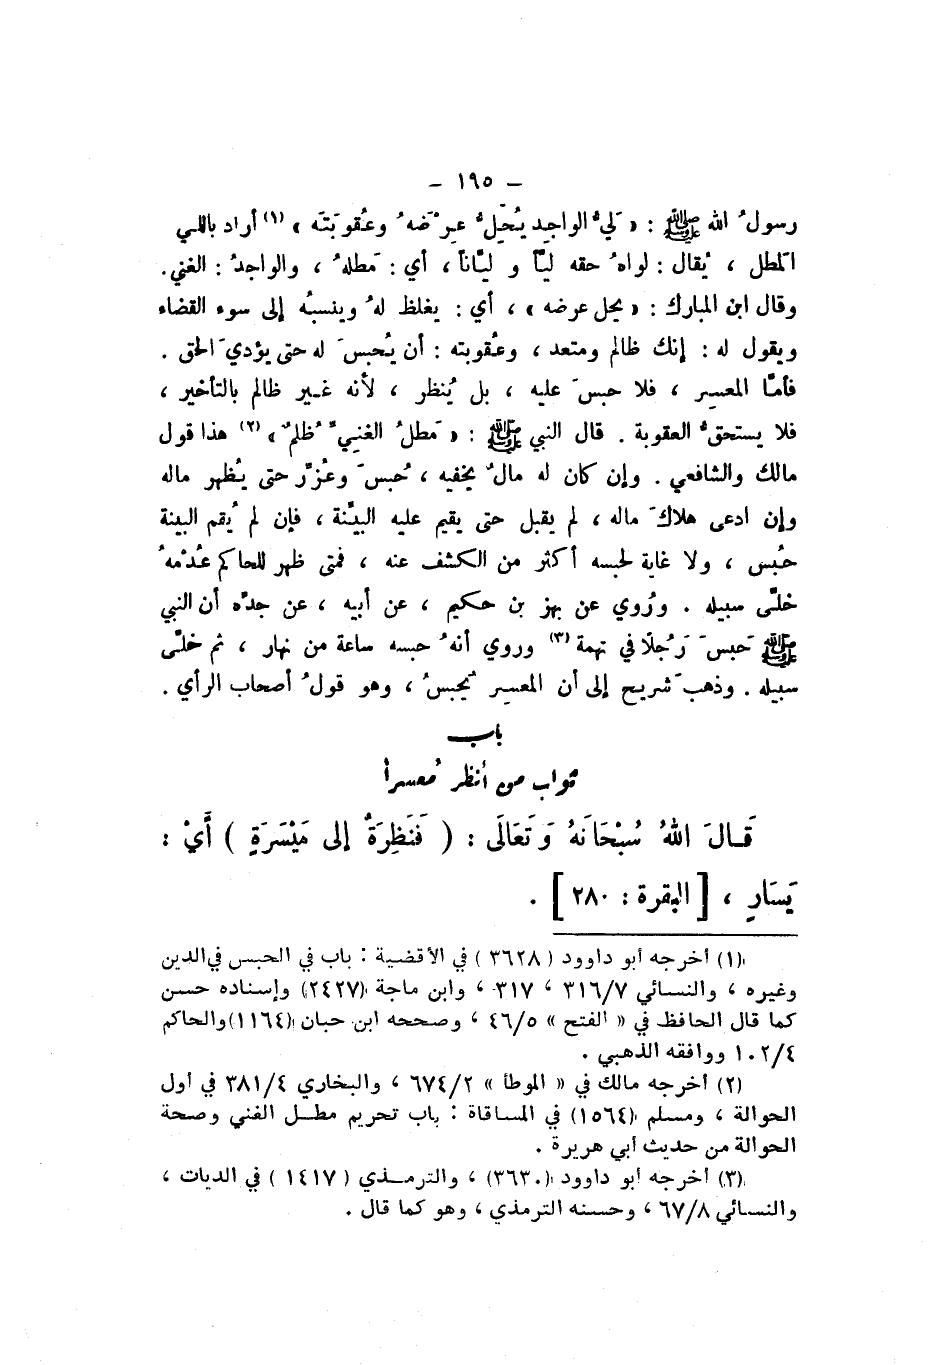 – ١٩٥ –
رسولُ الله ﷺ : « لَيُّ الواجِدِ يُحِلُّ عِرْضَهُ وعُقوبَتَه » (١) أراد باللي
المطل ، يُقال : لواهُ حقه ليّاً و ليّاناً ، أي : مَطلهُ ، والواجدُ : الغني.
وقال ابن المبارك : « يحل عرضه » ، أي : يغلظ لهُ وينسبُه إلى سوء القضاء
ويقول له : إنك ظالم ومتعد ، وعُقوبته : أن يُحبسَ له حتى يؤديَ الحق .
فأمّا المعسِر ، فلا حبسَ عليه ، بل يُنظر ، لأنه غير ظالم بالتأخير ،
فلا يستحقُّ العقوبة . قال النبي ﷺ : « مَطلُ الغنيِّ ظُلمٌ » (٢) هذا قول
مالك والشافعي . وإن كان له مالٌ يخفيه ، حُبسَ وعُزِّر حتى يُظهر ماله
وإن ادعى هلاكَ ماله ، لم يقبل حتى يقيم عليه البيِّنة ، فإن لم يُقم البينة
حُبس ، ولا غاية لحبسه أكثر من الكشف عنه ، فمتى ظهر للحاكم عُدْمهُ
خلّى سبيله . ورُوي عن بهز بن حكيم ، عن أبيه ، عن جدّه أن النبي
ﷺ حَبسَ رَجُلاً في تهمة (٣) وروي أنهُ حبسه ساعة من نهار ، ثم خلّى
سبيله . وذهبَ شريح إلى أن المعسِر يُحبسُ ، وهو قولُ أصحاب الرأي .
باب
ثواب من أنظر مُعسراً
قَالَ اللهُ سُبْحَانَهُ وَتَعَالَى : ( فَنَظِرَةٌ إلى مَيْسَرَةٍ ) أَيْ :
يَسَارٍ ، [ البقرة : ٢٨٠ ] .
(١) أخرجه أبو داوود ( ٣٦٢٨ ) في الأقضية : باب في الحبس في الدين
وغيره ، والنسائي ٣١٦/٧ ، ٣١٧ ، وابن ماجة (٢٤٢٧) وإسناده حسن
كما قال الحافظ في « الفتح » ٤٦/٥ ، وصححه ابن حبان (١١٦٤) والحاكم
١٠٢/٤ ووافقه الذهبي .
(٢) أخرجه مالك في « الموطأ » ٦٧٤/٢ ، والبخاري ٣٨١/٤ في أول
الحوالة ، ومسلم (١٥٦٤) في المساقاة : باب تحريم مطل الغني وصحة
الحوالة من حديث أبي هريرة .
(٣) أخرجه أبو داوود (٣٦٣٠) ، والترمذي ( ١٤١٧ ) في الديات ،
والنسائي ٦٧/٨ ، وحسنه الترمذي ، وهو كما قال .